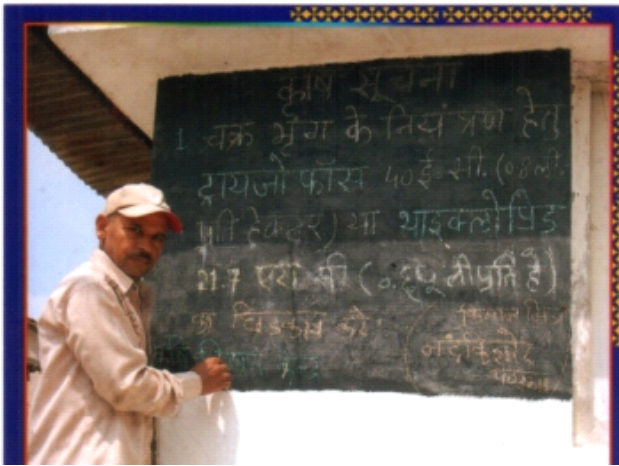 कृषि सूचना
1. चक्र भृंग के नियंत्रण हेतु
ट्रायजोफॉस 40 ई. सी. (0.8 ली.
प्रति हेक्टर) या थाइक्लोप्रिड
21.7 एस सी (0.
का छिड़काव करे
नंदकिशोर